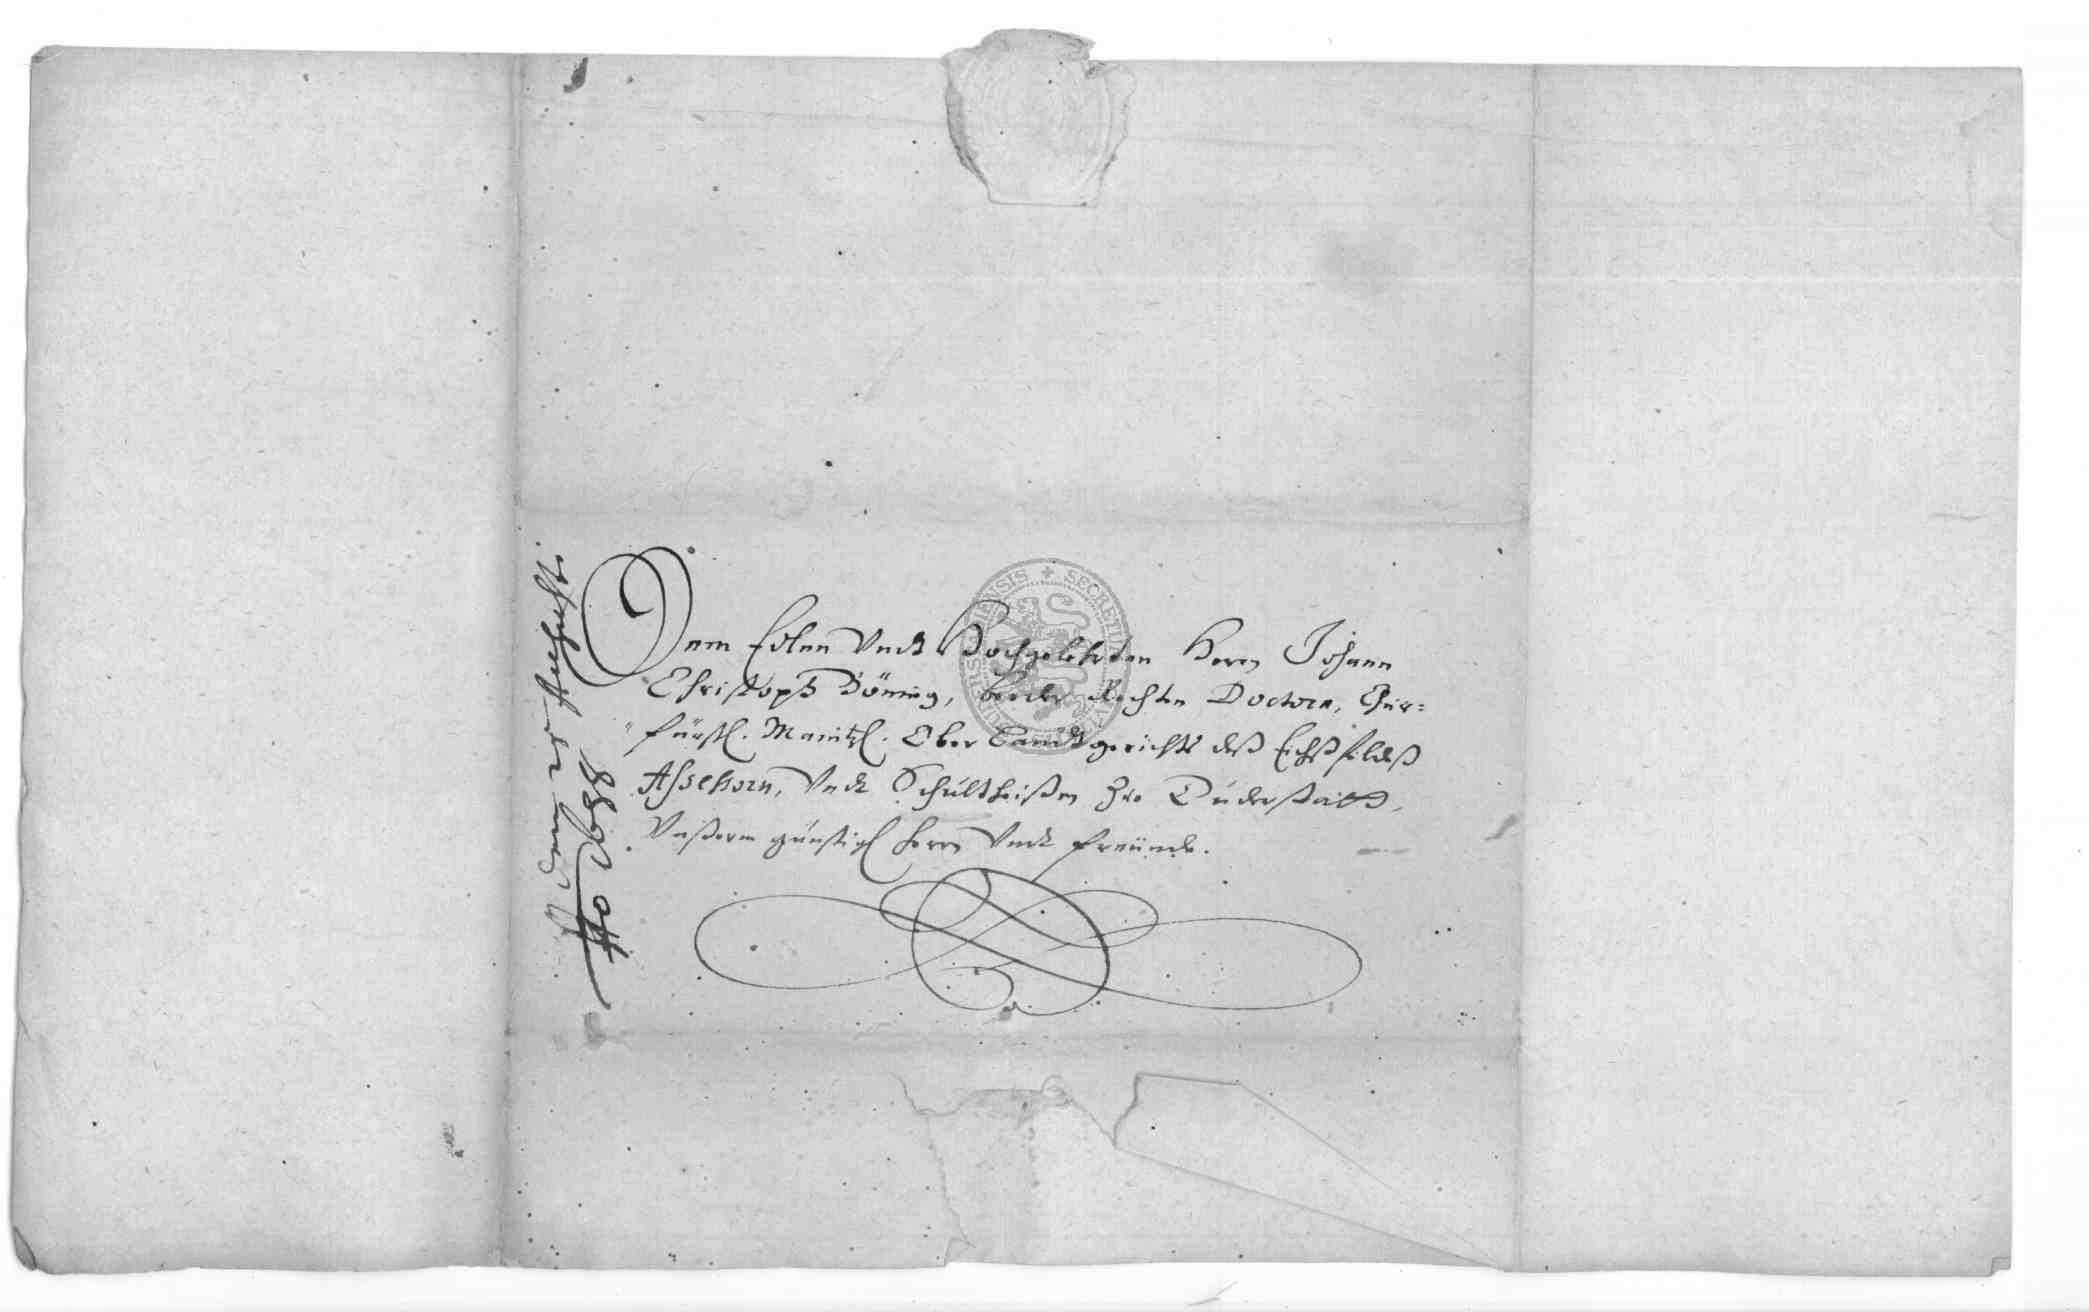 Dem Edlen Vndt Hochgelehrten Herrn Johann
Christoph Döning, beeder Rechten Doctorn, Chur=
fürstl. Maintzl. Ober Landtgerichts deß Eichßfeldeß
Assessorn, Vndt Schultheißen Zue Duderstadt,
Vnßerm günstigl Herrn Vndt Freünde.
den Augusti
Ao 1688
SECRETUM
ENSIS